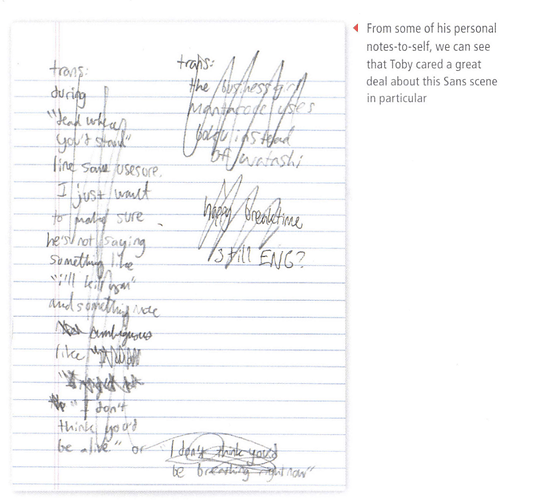 trans:
during
"dead where
you'd stand"
line sans uses ore.
I just want
to make sure
he's not saying
something like
"i'll kill you"
and something more
ambiguous
like
"I don't
think you'd
be alive" or "I don't think you'd
be breathing right now"
trans:
the business girl
uses
boku instead
of watashi
happy breaktime
still ENG?
From some of his personal
notes-to-self, we can see
that Toby cared a great
deal about this Sans scene
in particular